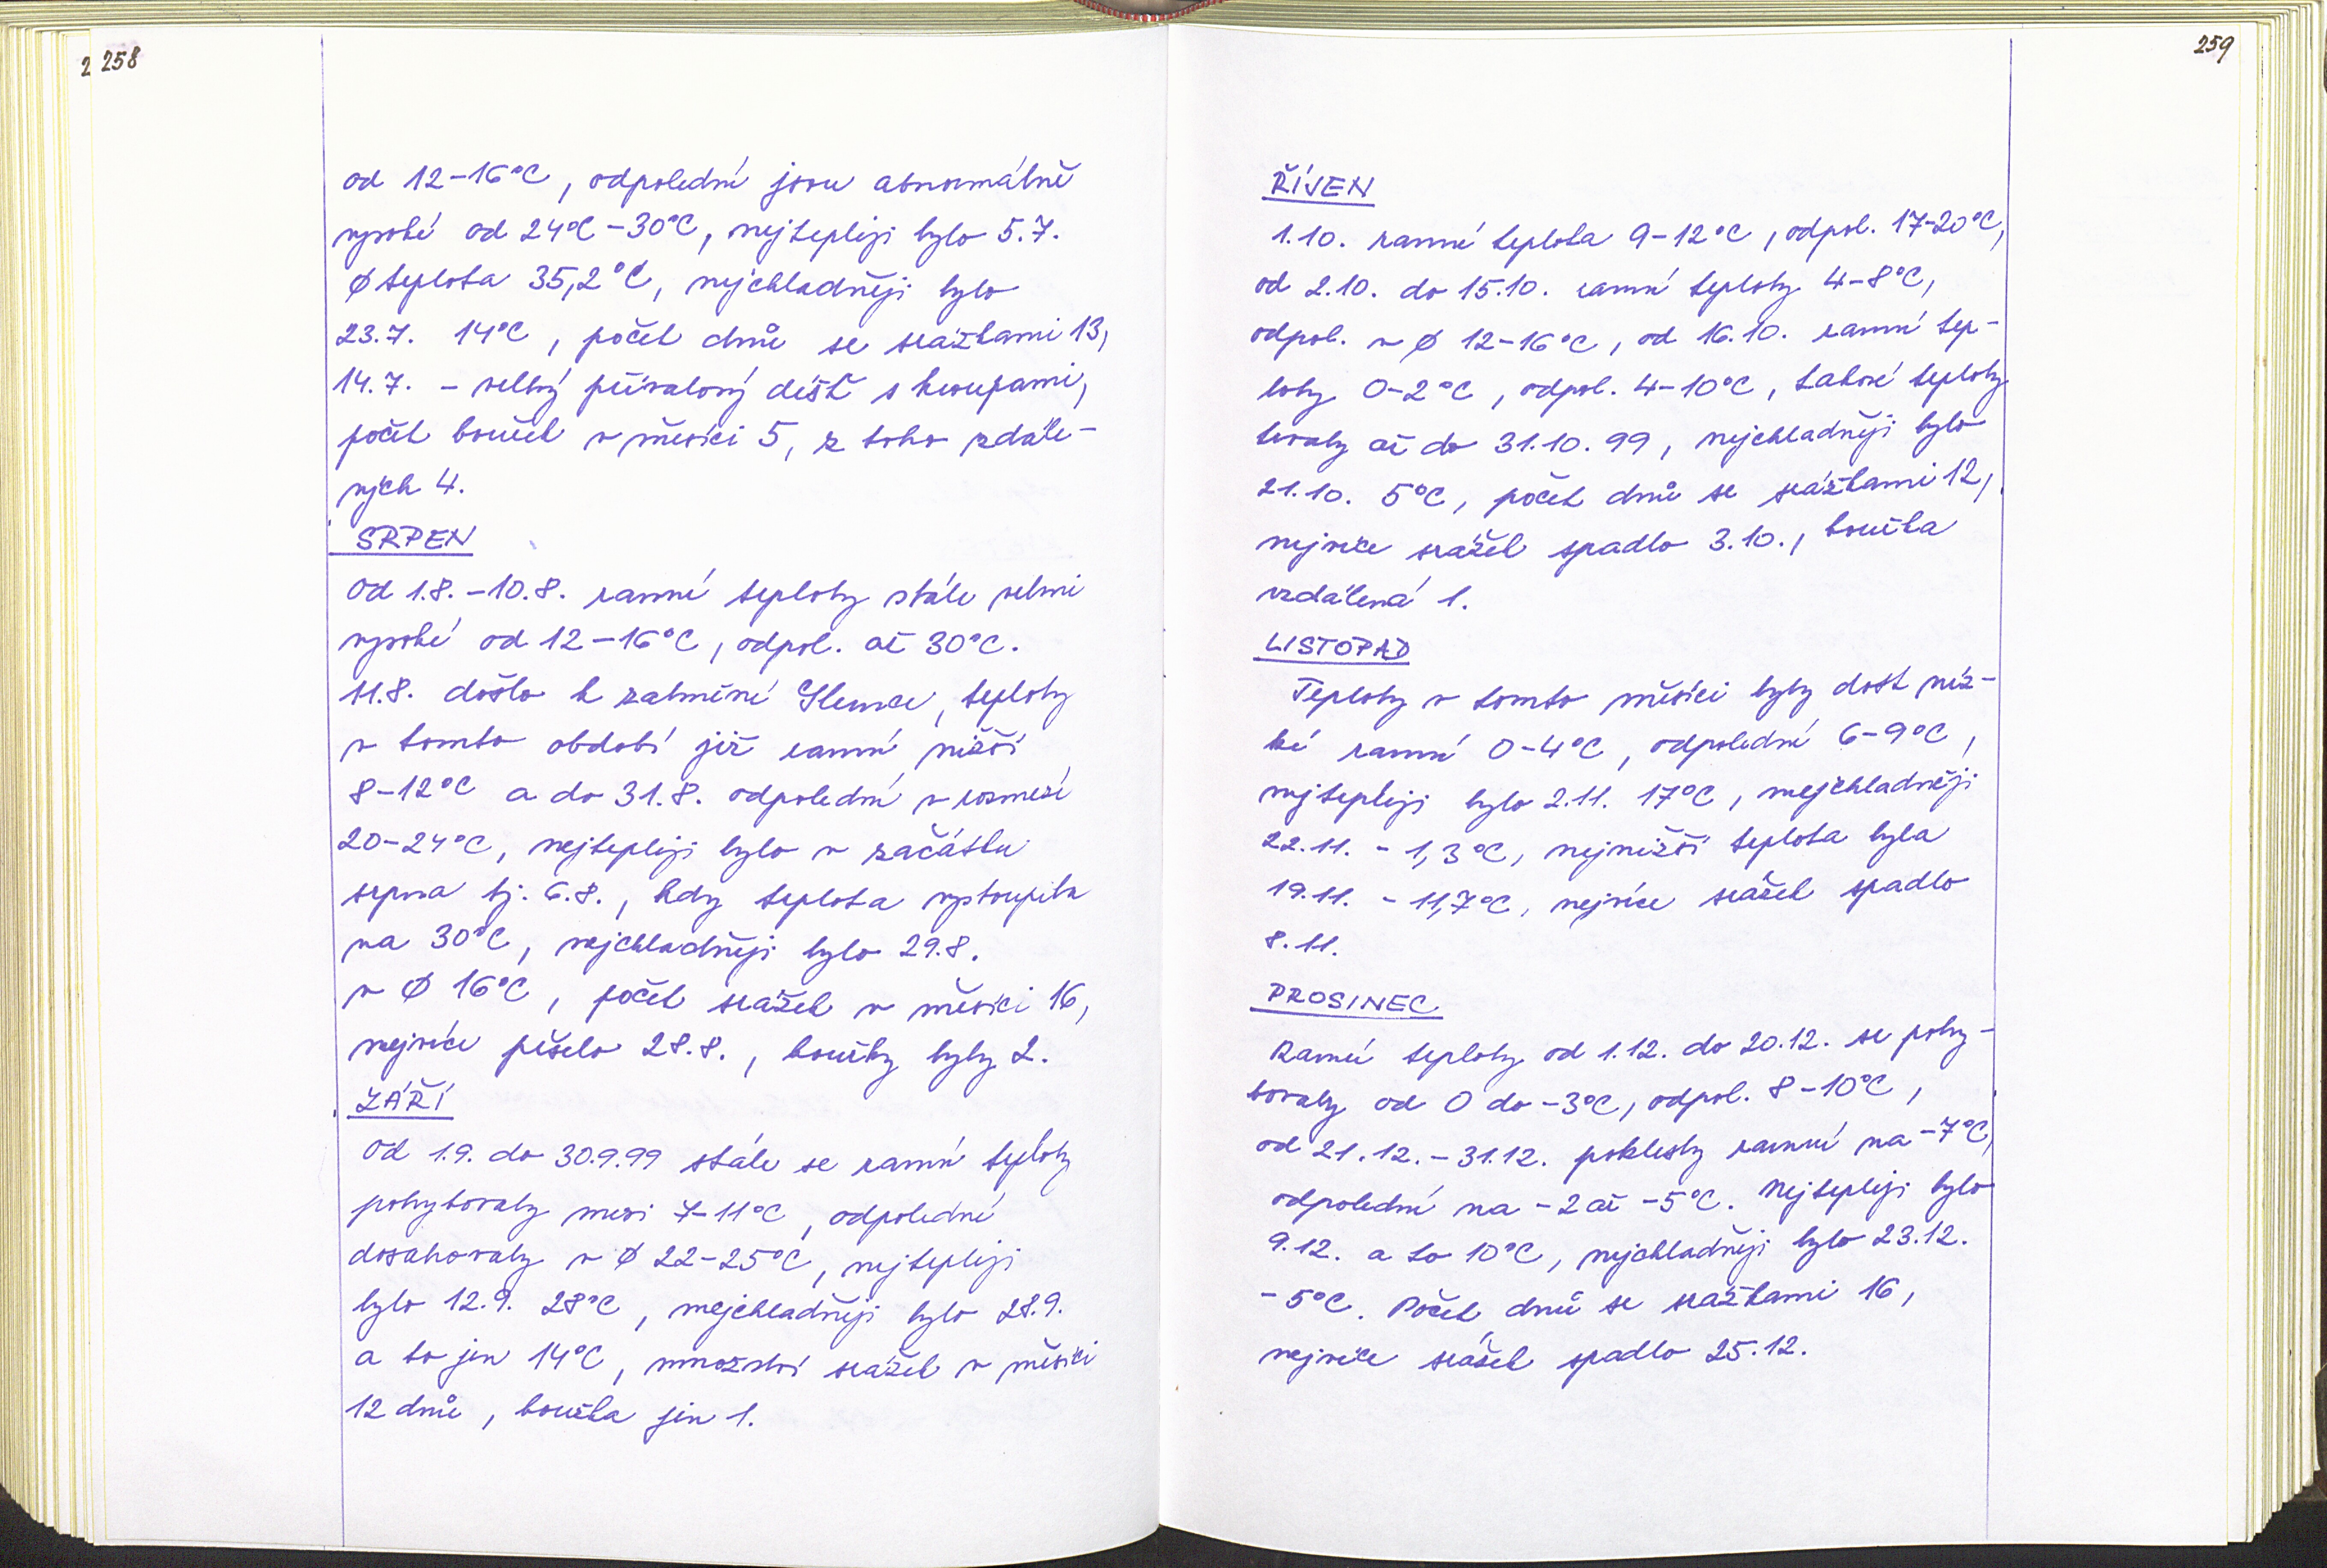 258
od 12-16°C, odpolední jsou abnormálně
vysoké od 24°C-30°C, nejtepleji bylo 5.7.
ø teplota 35,2°C, nejchladněji bylo
23.7. 14°C, počet dnů se srážkami 13,
14.7. - velký přívalový déšť s kroupami,
počet bouřek v měsíci 5, z toho vzdále-
ných 4.
SRPEN
Od 1.8.-10.8. ranní teploty stále velmi
vysoké od 12-16°C, odpol. až 30°C.
11.8. došlo k zatmění Slunce, teploty
v tomto období již ranní nižší
8-12°C a do 31.8. odpolední v rozmezí
20-24°C, nejtepleji bylo v začátku
srpna tj. 6.8., kdy teplota vystoupila
na 30°C, nejchladněji bylo 29.8.
v ø 16°C, počet srážek v měsíci 16,
nejvíce pršelo 28.8., bouřky byly 2.
ZÁŘÍ
Od 1.9. do 30.9.99 stále se ranní teploty
pohybovaly mezi 7-11°C, odpolední
dosahovaly v ø 22-25°C, nejtepleji
bylo 12.9. 28°C, nejchladněji bylo 28.9.
a to jen 14°C, množství srážek v měsíci
12 dnů, bouřka jen 1.
259
ŘÍJEN
1.10. ranní teplota 9-12°C, odpol. 17-20°C,
od 2.10. do 15.10. ranní teploty 4-8°C,
odpol. v ø 12-16°C, od 16.10. ranní tep-
loty 0-2°C, odpol. 4-10°C, takové teploty
trvaly až do 31.10.99, nejchladněji bylo
21.10. 5°C, počet dnů se srážkami 12,
nejvíce srážek spadlo 3.10., bouřka
vzdálená 1.
LISTOPAD
Teploty v tomto měsíci byly dost níz-
ké ranní 0-4°C, odpolední 6-9°C,
nejtepleji bylo 2.11. 17°C, nejchladněji
22.11. -1,3°C, nejnižší teplota byla
19.11. -11,7°C, nejvíce srážek spadlo
8.11.
PROSINEC
Ranní teploty od 1.12. do 20.12. se pohy-
bovaly od 0 do -3°C, odpol. 8-10°C,
od 21.12.-31.12. poklesly ranní na -7°C,
odpolední na -2 až -5°C. Nejtepleji bylo
9.12. a to 10°C, nejchladněji bylo 23.12.
-5°C. Počet dnů se srážkami 16,
nejvíce srážek spadlo 25.12.